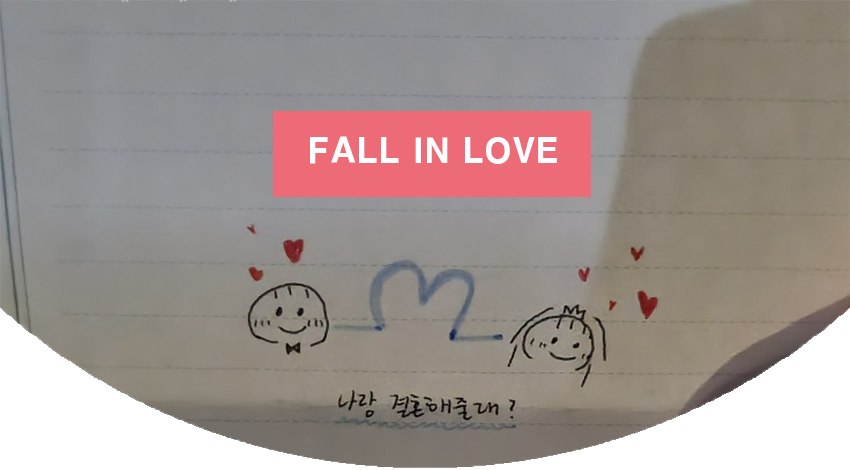 FALL IN LOVE
나랑 결혼해줄래?